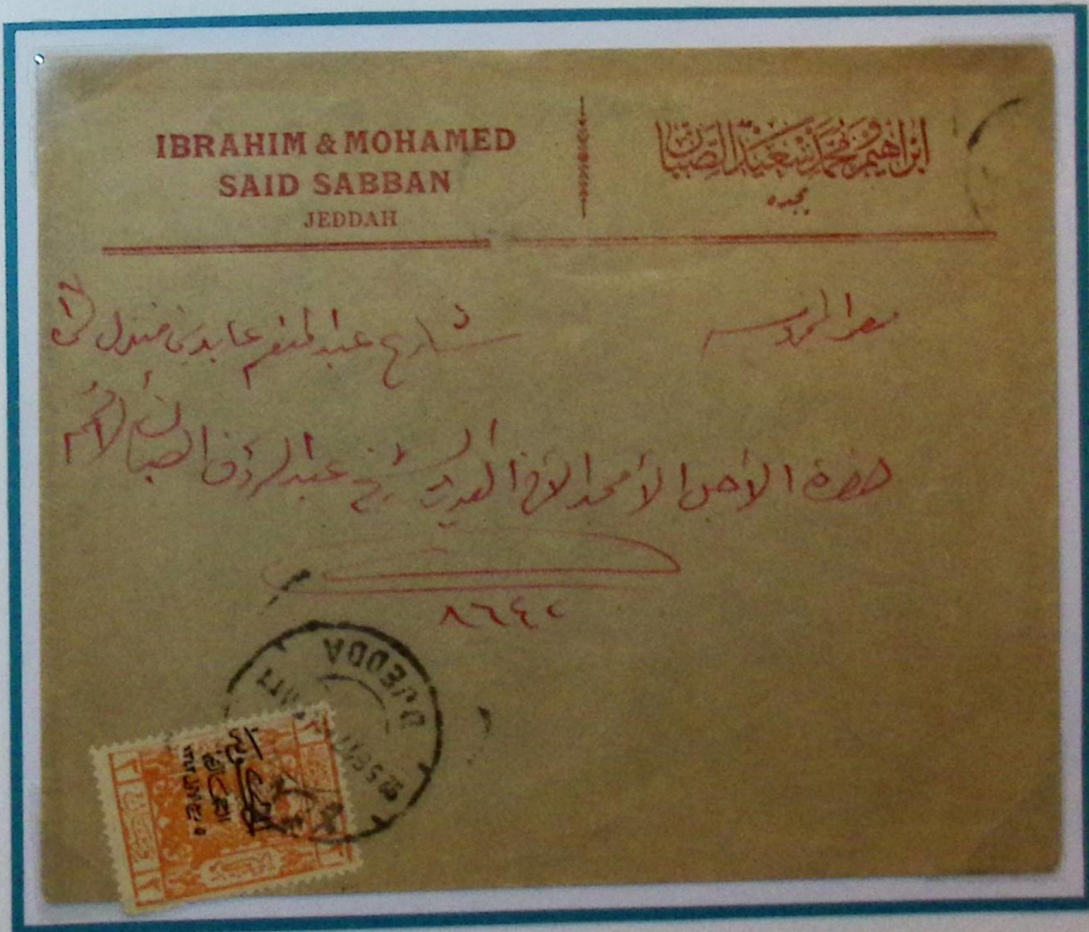 IBRAHIM & MOHAMED
SAID SABBAN
JEDDAH
ابراهيم ومحمد سعيد الصبان
بجده
مصر المحروسه
شارع عبد المنعم عابدين منزل
حضرة الأجل الأمجد الأخ العزيز الشيخ عبد الرؤف الصبان الأكرم
٨٦٤٠
DJEDDA